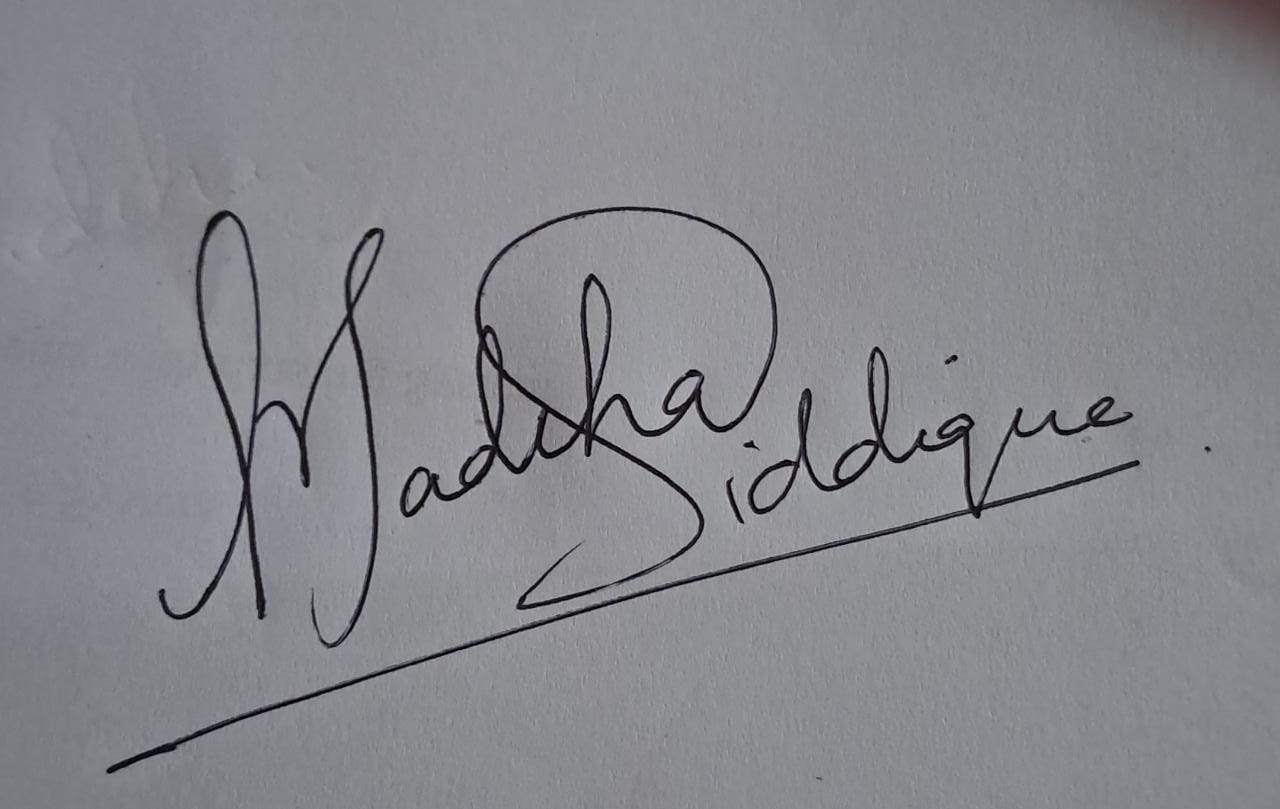 Madiha Siddique.